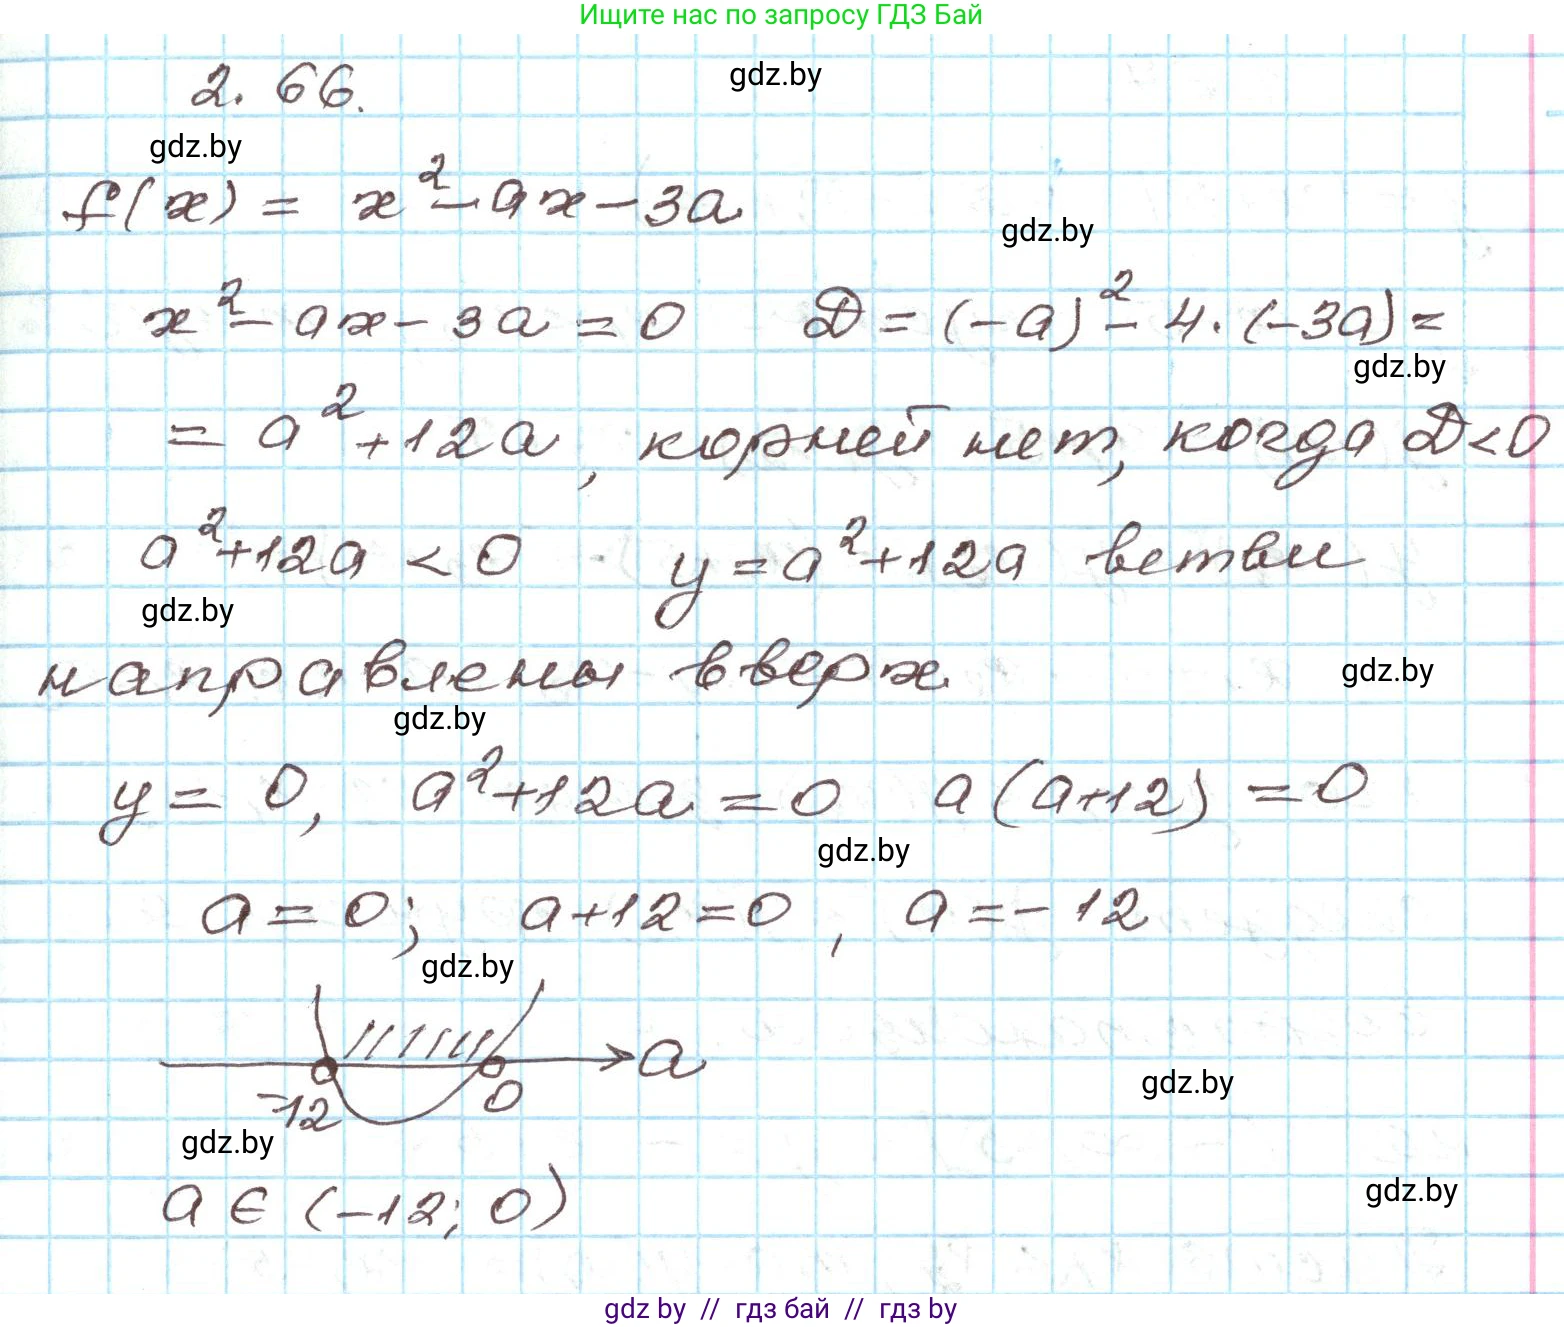 Ищите нас по запросу ГДЗ Бай
2. 66.
gdz.by
gdz.by
f(x) = x² - ax - 3a
gdz.by
x² - ax - 3a = 0 D = (-a)² - 4 · (-3a) =
gdz.by
= a² + 12a, корней нет, когда D < 0
a² + 12a < 0 y = a² + 12a ветви
gdz.by
направлены вверх.
gdz.by
gdz.by
y = 0, a² + 12a = 0 a (a+12) = 0
gdz.by
a = 0; a + 12 = 0, a = - 12
gdz.by
a
-12 0
gdz.by
gdz.by
a ∈ (-12; 0)
gdz.by
gdz by // гдз бай // гдз by